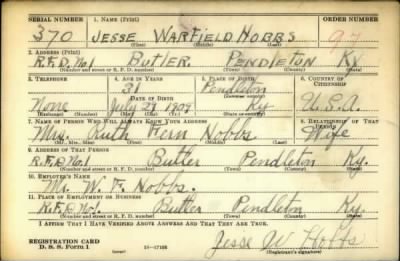 SERIAL NUMBER 1. NAME (Print) ORDER NUMBER
370 JESSE WARFIELD HOBBS 97
(First) (Middle) (Last)
2. ADDRESS (Print)
R.F.D. No 1 Butler Pendleton Ky.
(Number and street or R. F. D. number) (Town) (County) (State)
3. TELEPHONE 4. AGE IN YEARS 5. PLACE OF BIRTH 6. COUNTRY OF CITIZENSHIP
31 Pendleton
DATE OF BIRTH (Town or county)
None July 29 1909 Ky U.S.A.
(Exchange) (Number) (Mo.) (Day) (Yr.) (State or country)
7. NAME OF PERSON WHO WILL ALWAYS KNOW YOUR ADDRESS 8. RELATIONSHIP OF THAT PERSON
Mrs. Ruth Fern Hobbs Wife
(Mr., Mrs., Miss) (First) (Middle) (Last)
9. ADDRESS OF THAT PERSON
R.F.D. No. 1 Butler Pendleton Ky.
(Number and street or R. F. D. number) (Town) (County) (State)
10. EMPLOYER'S NAME
Mr. W. F. Hobbs.
11. PLACE OF EMPLOYMENT OR BUSINESS
R.F.D. No 1. Butler Pendleton Ky.
(Number and street or R. F. D. number) (Town) (County) (State)
I AFFIRM THAT I HAVE VERIFIED ABOVE ANSWERS AND THAT THEY ARE TRUE.
REGISTRATION CARD
D. S. S. Form 1 (over) 16—17105 Jesse W Hobbs
(Registrant's signature)